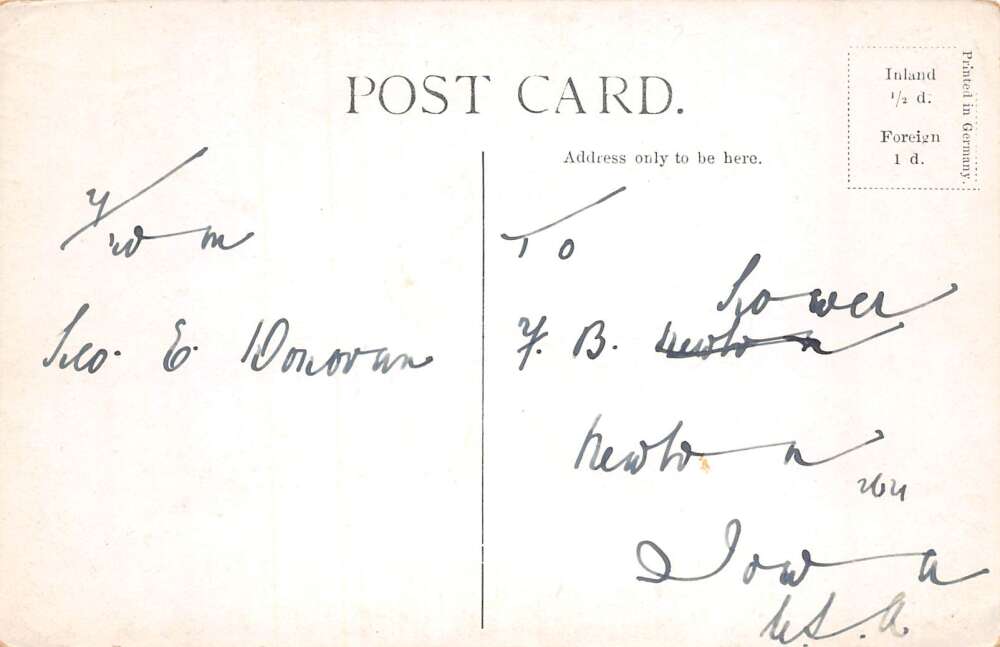 POST CARD.
Inland
½ d.
Foreign
1 d.
Printed in Germany.
Address only to be here.
From
Geo. E. Donovan
To
Gower
F. B. Newton
Newton
Iowa
U.S.A.